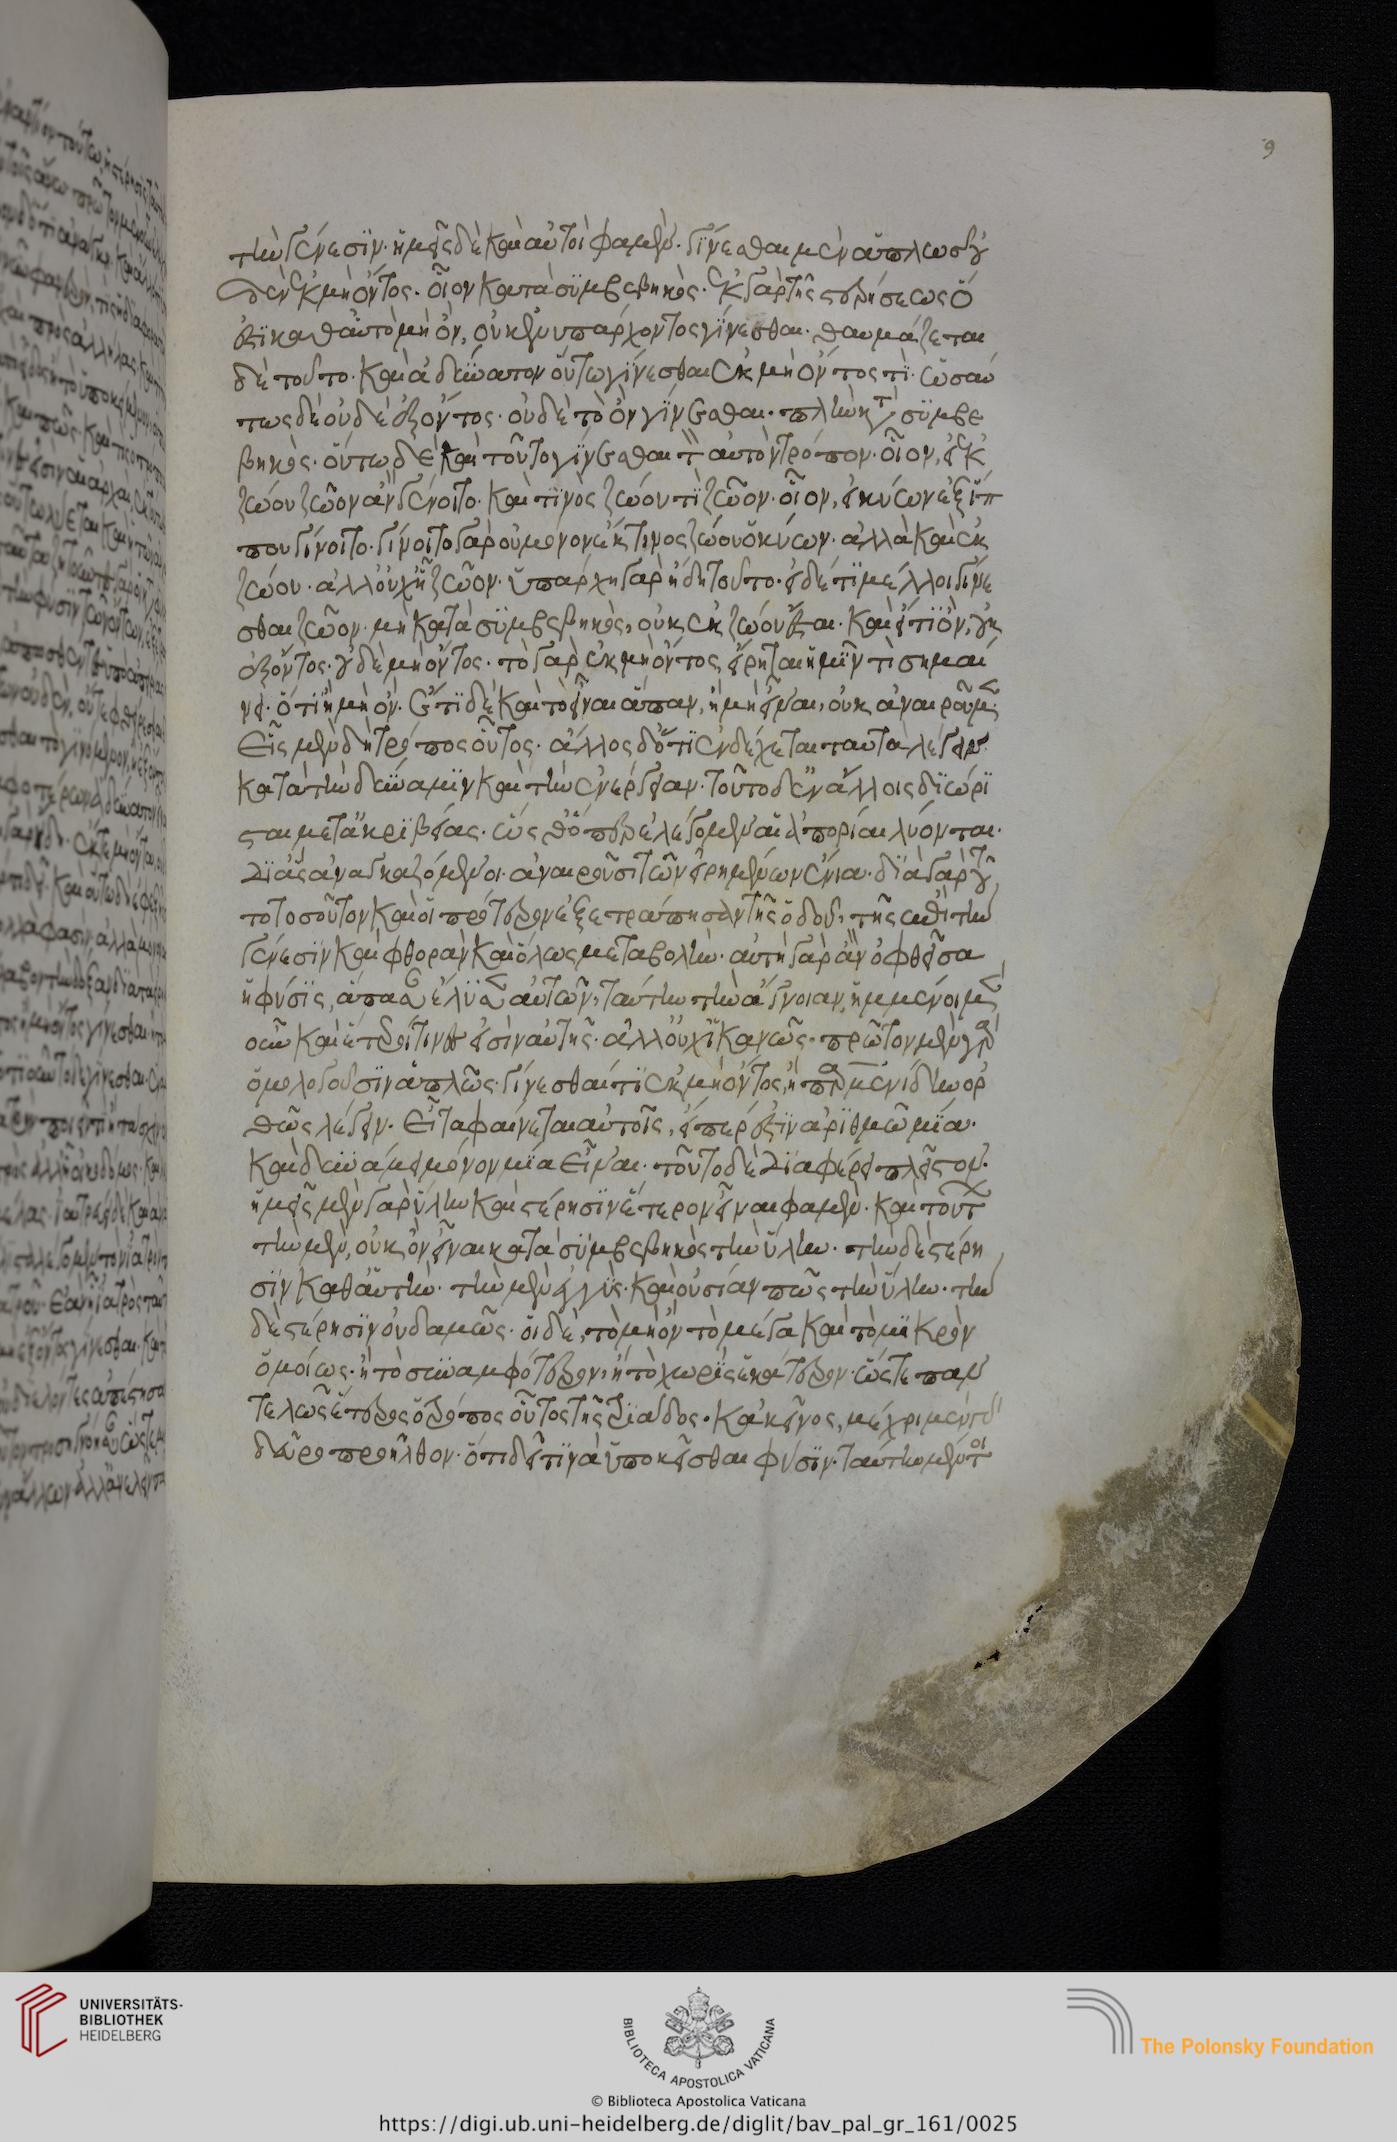 τὴν γένεσϊν· ἡμεῖς δὲ καὶ αὐτοὶ φαμὲν· γίνεσθαι μὲν ἁπλως οὐ
δὲν ἐκ μὴ ὄντος· οἷον κατὰ συμβεβηκὸς· ἐκ γὰρ τῆς στερήσεως ὅ
ἐστι καθ' αὑτὸ μὴ ὂν, οὐκ ἐνυπάρχοντος γίνεσθαι· θαυμάζεται
δὲ τοῦτο· καὶ ἀδύνατον οὕτω γίνεσθαι ἐκ μὴ ὄντος τὶ· ὡσαύ
τως δὲ οὐδὲ ἐξ ὄντος· οὐδὲ τὸ ὂν γίνεσθαι· πλὴν κατὰ συμβε
βηκὸς· οὕτω δὲ καὶ τοῦτο γίνεσθαι τὸν αὐτὸν τρόπον· οἷον, εἰ ἐκ
ζώου ζῶον ἂν γένοιτο· καὶ τινὸς ζώου τὶ ζῶον· οἷον, εἰ κύων ἐξ ἵπ
που γίνοιτο· γίνοιτο γὰρ οὐ μόνον ἐκ τινος ζώου ὁ κύων· ἀλλὰ καὶ ἐκ
ζώου· ἀλλ' οὐχῇ ζῶον· ὑπάρχει γὰρ ἤδη τοῦτο· εἰ δέ τι μέλλοι γίνε
σθαι ζῶον· μὴ κατὰ συμβεβηκὸς, οὐκ ἐκ ζώου ἔσται· καὶ εἴ τι ὂν, οὐκ
ἐξ ὄντος· οὐδὲ μὴ ὄντος· τὸ γὰρ ἐκ μὴ ὄντος, εἴρηται ἡμῖν τὶ σημαί
νει· ὅτι ᾗ μὴ ὂν· ἔτι δὲ καὶ τὸ εἶναι ἅπαν, ἢ μὴ εἶναι, οὐκ ἀναιροῦμεν·
Εἷς μὲν δὴ τρόπος οὗτος· ἄλλος δ' ὅτι ἐνδέχεται ταυτὰ λέγειν
κατὰ τὴν δύναμιν καὶ τὴν ἐνέργειαν· τοῦτο δ' ἐν ἄλλοις διώρι
σται μετ' ἀκριβείας· ὡς θ' ὅπερ ἐλέγομεν αἱ ἀπορίαι λύονται·
δι' ἃς ἀναγκαζόμενοι· ἀναιροῦσι τῶν εἰρημένων ἔνια· διὰ γὰρ τοῦ
το τοσοῦτον καὶ οἱ πρότερον ἐξετράπησαν τῆς ὁδοῦ, τῆς ἐπὶ τὴν
γένεσιν καὶ φθορὰν καὶ ὅλως μεταβολὴν· αὐτὴ γὰρ ἂν ὀφθεῖσα
ἡ φύσις, ἅπασαν ἔλυσεν αὐτῶν, ταύτην τὴν ἄγνοιαν, ἡμμένοι μὲν
οὖν καὶ ἕτεροι τινές εἰσὶν αὐτῆς· ἀλλ' οὐχ ἱκανῶς· πρῶτον μὲν γὰρ
ὁμολογοῦσιν ἁπλῶς· γίνεσθαί τι ἐκ μὴ ὄντος, ᾗ παρμενίδην ὀρ
θῶς λέγειν· Εἶτα φαίνεται αὐτοῖς, εἴπερ ἐστὶν ἀριθμῶ μία·
καὶ δυνάμει μόνον μία εἶναι· τοῦτο δὲ διαφέρει πλεῖστον·
ἡμεῖς μὲν γὰρ ὕλην καὶ στέρησιν ἕτερον εἶναι φαμὲν· καὶ τούτων
τὴν μὲν, οὐκ ὂν εἶναι κατὰ συμβεβηκὸς τὴν ὕλην· τὴν δὲ στέρη
σιν καθ' αὑτὴν· τὴν μὲν ἐγγὺς· καὶ οὐσίαν πῶς τὴν ὕλην· τὴν
δὲ στέρησιν οὐδαμῶς· οἱ δὲ, τὸ μὴ ὂν τὸ μέγα καὶ τὸ μικρὸν
ὁμοίως· ἢ τὸ συναμφότερον, ἢ τὸ χωρὶς ἑκάτερον· ὥστε παν
τελῶς ἕτερος ὁ τρόπος οὗτος τῆς τριάδος· κἀκεῖνος, μέχρι μὲν γὰρ
δεῦρο προῆλθον· ὅτι δεῖ τινὰ ὑποκεῖσθαι φύσιν· ταύτην μέντοι
9
UNIVERSITÄTS-
BIBLIOTHEK
HEIDELBERG
BIBLIOTECA APOSTOLICA VATICANA
© Biblioteca Apostolica Vaticana
The Polonsky Foundation
https://digi.ub.uni-heidelberg.de/diglit/bav_pal_gr_161/0025